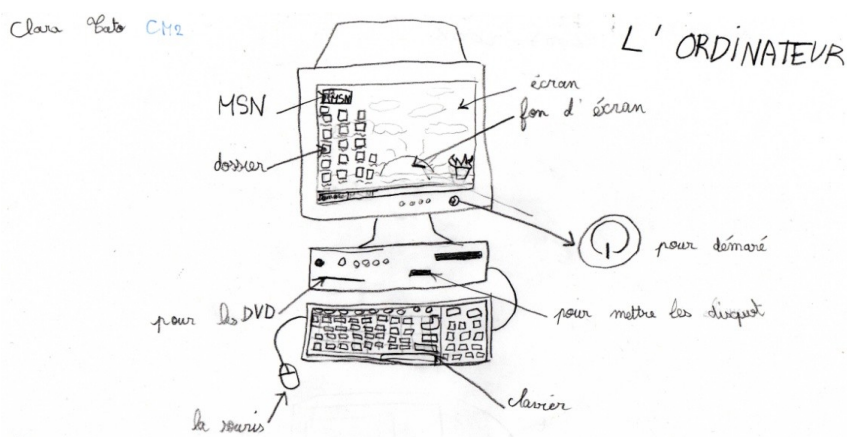 Clara Tato CM2
L' ORDINATEUR
MSN
MSN
écran
fon d' écran
dossier
pour démaré
pour les DVD
pour mettre les disquot
clavier
la souris